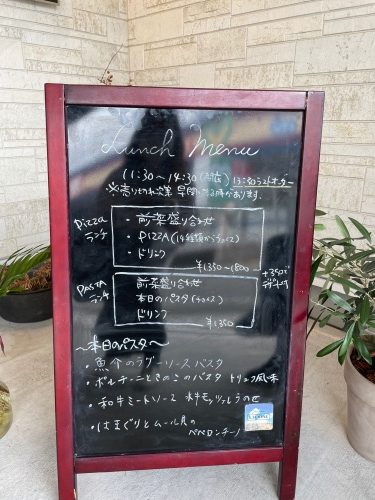 Lunch Menu
11:30~14:30(閉店) 13:30ラストオーダー
※売り切れ次第 早閉いする時があります.
Pizza ランチ
・前菜盛り合わせ
・PIZZA(14種類からチョイス)
・ドリンク
¥1350~1800
PASTA ランチ
前菜盛り合わせ
本日のパスタ(チョイス)
ドリンク
¥1350
+350で デザート付
~本日のパスタ~
・魚介のラグーソースパスタ
・ポルチーニときのこのパスタ トリュフ風味
・和牛ミートソース 水牛モッツァレラのせ
・はまぐりとムール貝の
ペペロンチーノ